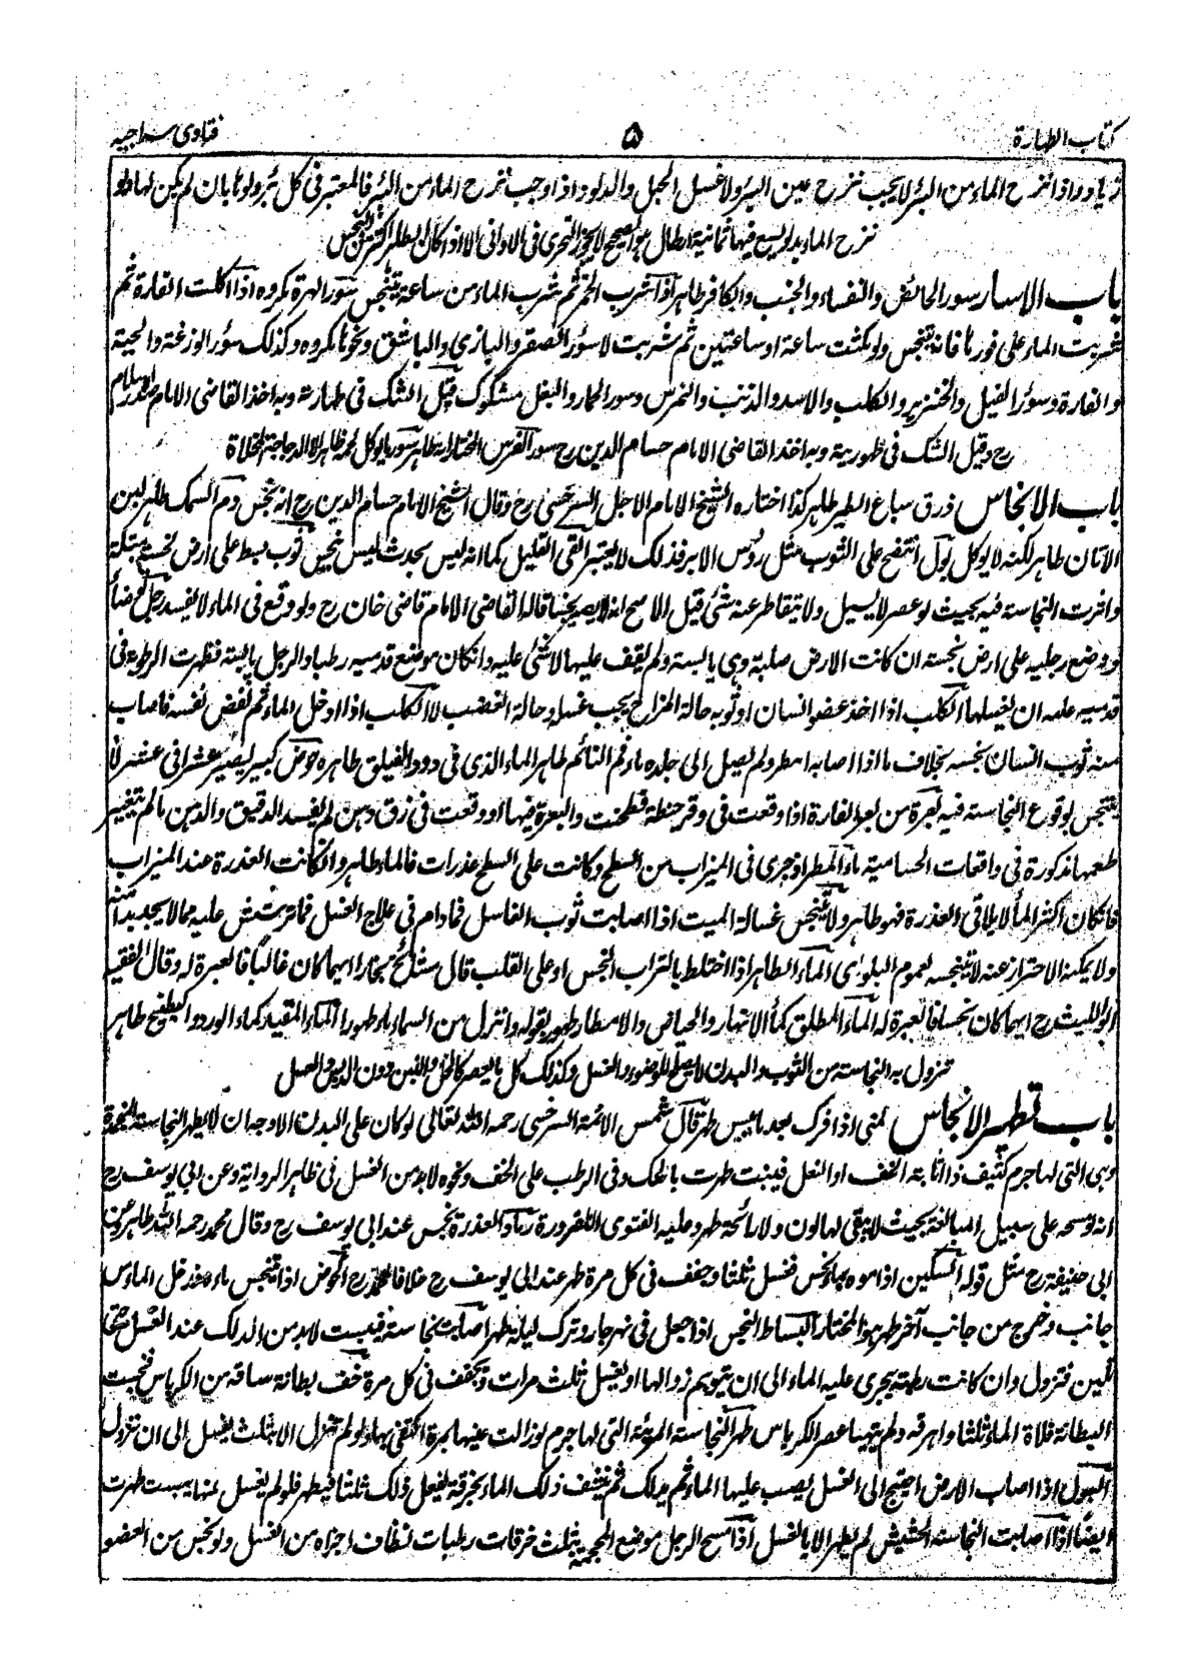 كتاب الطهارة ۵ فتاوى سراجيه
زيادة واذا نزح الماء من البئر لا يجب نزح عين البئر ولا غسل الحبل والدلو واذا وجب نزح الماء من البئر فالمعتبر فى كل بئر دلوها بان لم يكن لها دلو
نزح الماء بدلو يسع فيها ثمانية ارطال هو الصحيح لا يجوز التحرى فى الاوانى الا اذا كان
باب الاسار سور الحائض والنفساء والجنب والكافر طاهر اذا شرب الخمر ثم شرب الماء من ساعة يتنجس سور الهرة مكروه اذا اكلت الفارة ثم
شربت الماء على فورها فانه يتنجس ولو مكثت ساعة او ساعتين ثم شربت لا سؤر الصقر والبازى والباشق ونحوها مكروه وكذلك سؤر الوزغة والحية
والفارة وسؤر الفيل والخنزير والكلب والاسد والذئب والنمر نجس وسور الحمار والبغل مشكوك قيل الشك فى طهارته وبه اخذ القاضى الامام صدر الاسلام
رح وقيل الشك فى طهوريته وبه اخذ القاضى الامام حسام الدين رح سور الفرس المختار انه طاهر سور ما يوكل لحمه طاهر الا الدجاجة المخلاة
باب الانجاس ذرق سباع الطير طاهر كذا اختاره الشيخ الامام الاجل السرخسى رح وقال الشيخ الامام حسام الدين رح انه نجس دم السمك طاهر لبن
الاتان طاهر لكنه لا يوكل بول انتضح على الثوب مثل رؤس الابر فذلك لا يعتبر القى القليل كما انه ليس بحدث ليس بنجس ثوب بسط على ارض نجسة مبتلة
واثرت النجاسة فيه بحيث لو عصر لا يسيل ولا يتقاطر عنه شئ قيل الاصح انه لا يصير نجسا قاله القاضى الامام قاضى خان رح ولو وقع فى الماء لا يفسد رجل توضأ
ووضع رجليه على ارض نجسة ان كانت الارض صلبة وهى يابسة ولم يقف عليها لا شئ عليه وان كان موضع قدميه رطبا والرجل يابسة فظهرت الرطوبة فى
قدميه عليه ان يغسلها الكلب اذا اخذ عضو انسان او ثوبه حالة المزاح يجب غسله وحالة الغضب لا الكلب اذا دخل الماء ثم نفض نفسه فاصاب
منه ثوب انسان نجسه بخلاف ما اذا اصابه مطر ولم يصل الى جلده ماء فم النائم طاهر الماء الذى فى دود الفيلق طاهر حوض كبير يصير عشرا فى عشر لا
يتنجس بوقوع النجاسة فيه بعرة من بعر الفارة اذا وقعت فى وقر حنطة فطحنت والبعرة فيها او وقعت فى زق دهن لم يفسد الدقيق والدهن ما لم يتغير
طعمها مذكورة فى واقعات الحسامية ماء المطر اذا جرى فى الميزاب من السطح وكانت على السطح عذرات فالماء طاهر وان كانت العذرة عند الميزاب
فان كان اكثر الماء لا يلاقى العذرة فهو طاهر والا يتنجس غسالة الميت اذا اصابت ثوب الغاسل فما دام فى علاج الغسل فما ترشش عليه مما لا يجد بدا منه
ولا يمكنه الاحتراز عنه لا يتنجسه لعموم البلوى الماء الطاهر اذا اختلط بالتراب النجس او على القلب قال مشائخ بخارا ايهما كان غالبا فالعبرة له وقال الفقيه
ابو الليث رح ايهما كان نجسا فالعبرة له الماء المطلق كماء الانهار والحياض والامطار طهور بقوله وانزل من السماء ماء طهورا الماء المقيد كماء الورد والبطيخ طاهر
تزول به النجاسة من الثوب والبدن لا يصلح للوضوء والغسل وكذلك كل ما يعصر كالخل واللبن دون الدبس والعسل
باب تطهير الانجاس منى اذا فرك بعد ما يبس طهر قال شمس الائمة السرخسى رحمه الله تعالى لو كان على البدن الاوجه ان لا يطهر النجاسة المتجمدة
وهى التى لها جرم كثيف اذا اصابت الخف او النعل فيبست طهرت بالحك وفى الرطب على الخف ونحوه لابد من الغسل فى ظاهر الرواية وعن ابى يوسف رح
انه لو مسحه على سبيل المبالغة بحيث لا يبقى لها لون ولا رائحة طهر وعليه الفتوى للضرورة رماد العذرة نجس عند ابى يوسف رح وقال محمد رحمه الله طاهر وعن
ابى حنيفة رح مثل قوله السكين اذا موه بماء نجس فغسل ثلثا وجفف فى كل مرة طهر عند ابى يوسف رح خلافا لمحمد رح الحوض اذا تنجس ماءه فدخل الماء من
جانب وخرج من جانب آخر طهر هو المختار البساط النجس اذا جعل فى نهر جار وترك ليلة طهر اصابته نجاسة فيبست لابد من الدلك عند الغسل حتى
تلين فتزول وان كانت رطبة يجرى عليه الماء الى ان يتوهم زوالها او يغسل ثلث مرات ويجفف فى كل مرة خف بطانة ساقه من الكرباس فنجست
البطانة فملاه الماء ثلثا واهرقه ولم يتهيأ عصر الكرباس طهر النجاسة المرئية التى لها جرم لو زالت عينها بمرة اكتفى بها ولو لم تزل الا بثلث يغسل الى ان تزول
البول اذا اصاب الارض احتيج الى الغسل يصب عليها الماء ثم يدلك ثم ينشف ذلك الماء بخرقة يفعل ذلك ثلثا فيطهر فلو لم يغسل لمنها يبست طهرت
ايضا اذا اصابت النجاسة الحشيش لم يطهر الا بالغسل اذا مسح الرجل موضع المحجمة بثلث خرقات رطبات نظاف اجزاه من الغسل ولو نجس من العضو